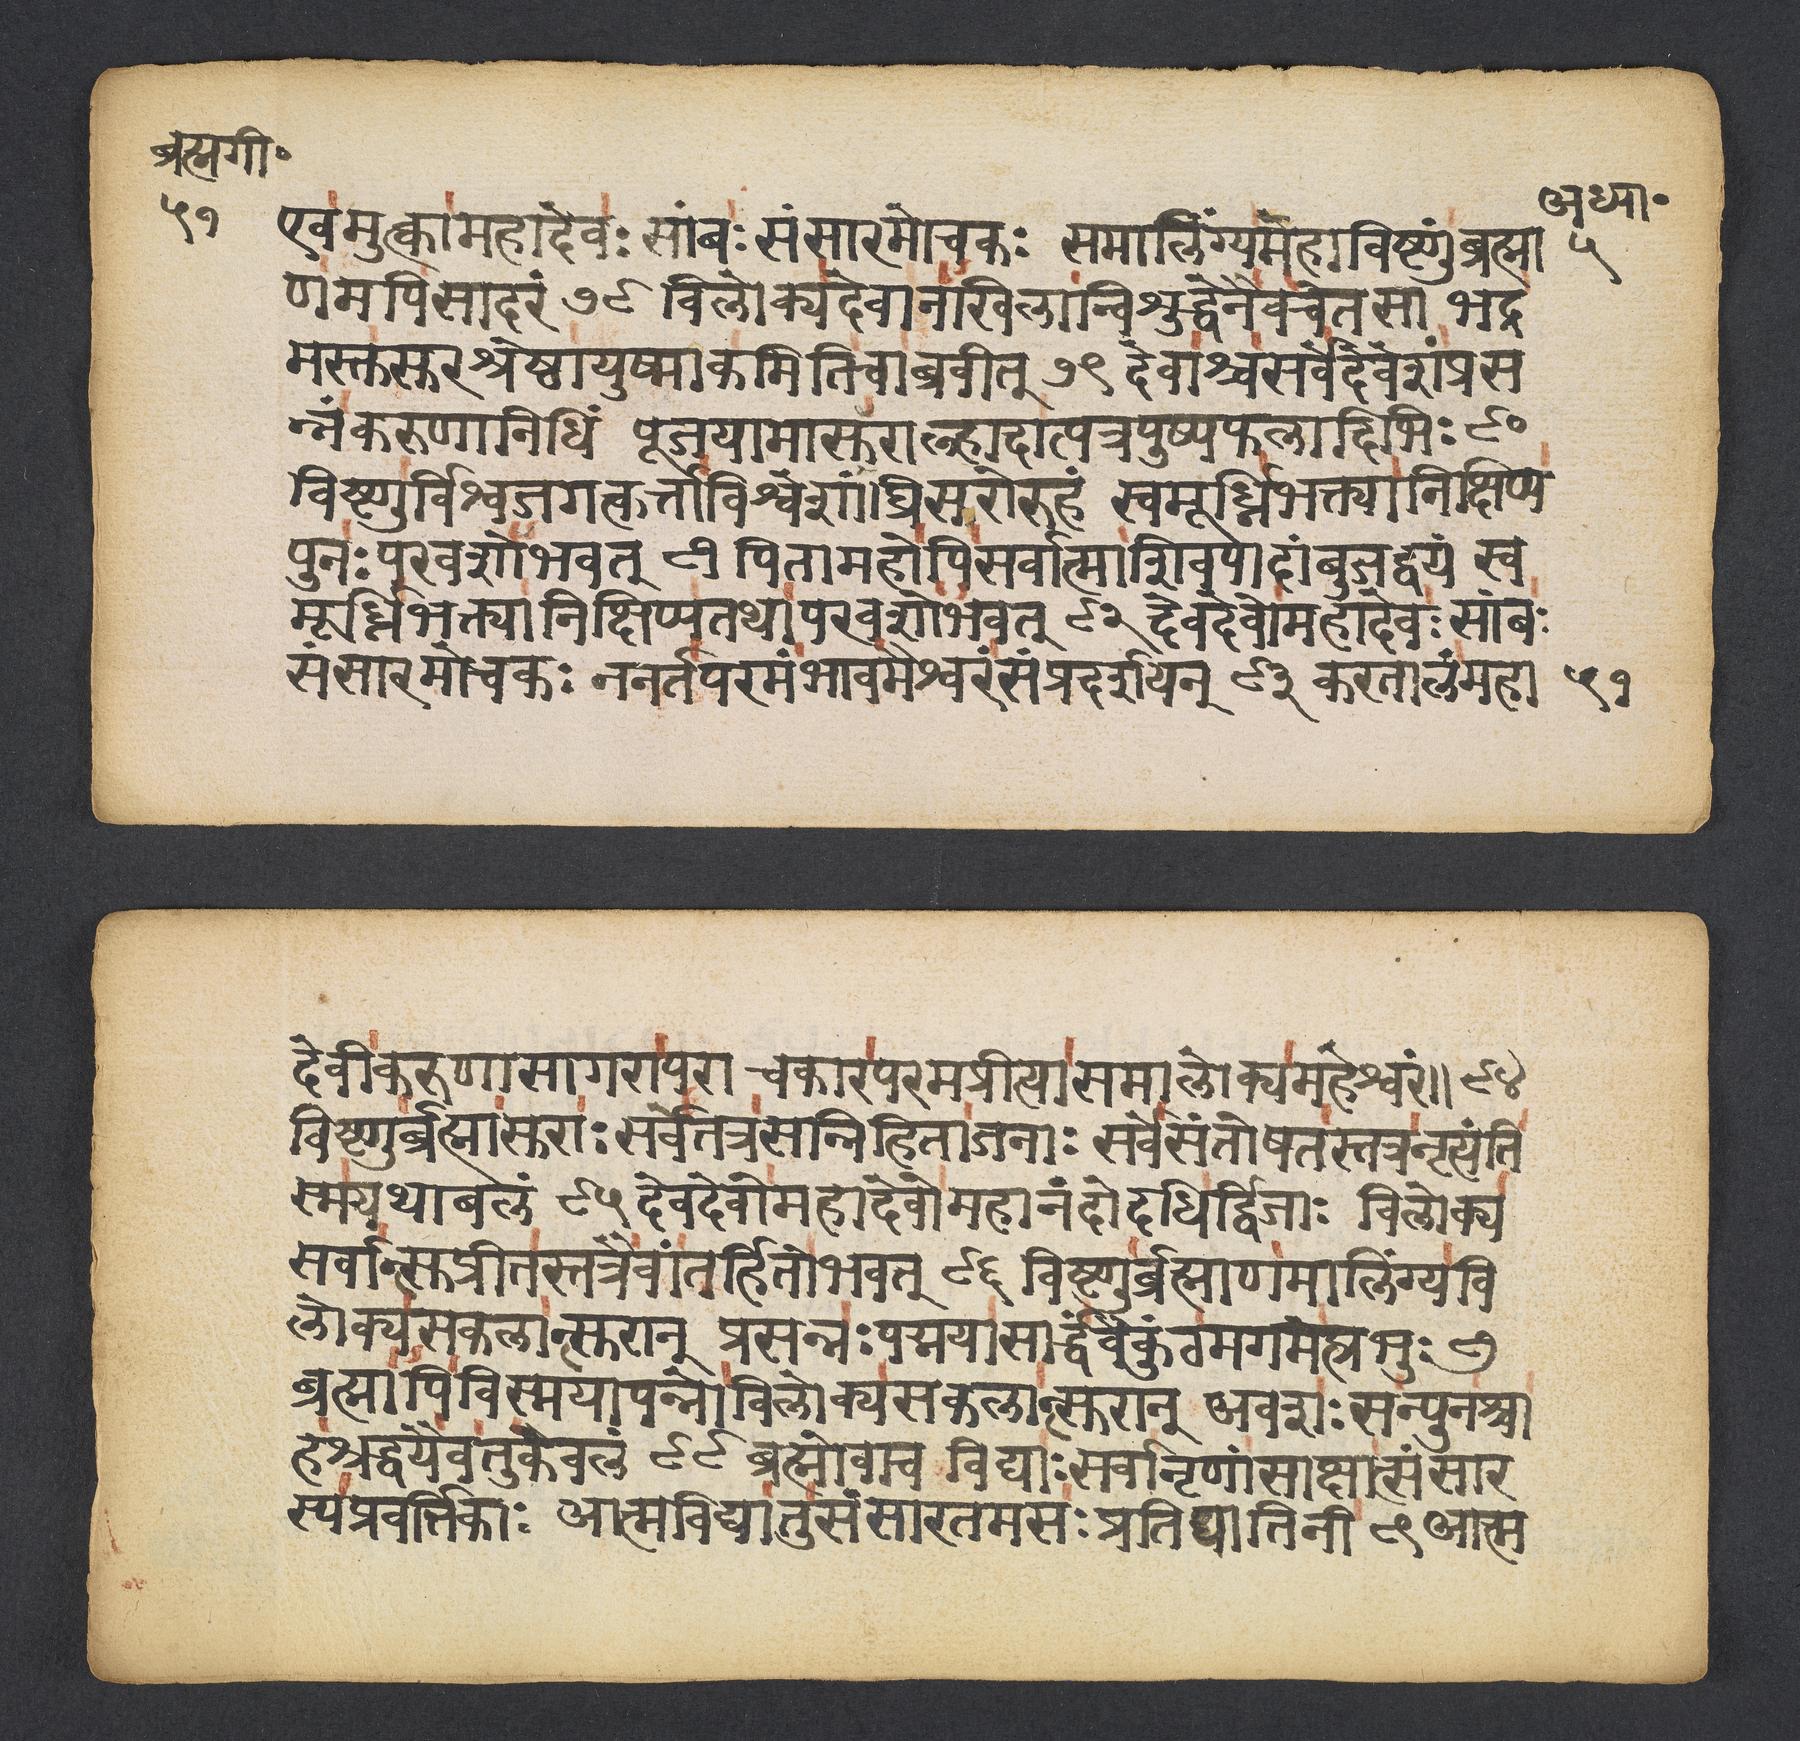 ब्रह्मगी॰
५१
अध्या॰
५
एवमुत्क्वामहादेवः सांबः संसारमोचकः समालिंग्यमहाविष्णुंब्रह्मा
णमपिसादरं ७८ विलोक्यदेवानखिलान्विशुद्धेनैवचेतसा भद्र
मस्तुसुरश्रेष्ठायुष्माकमितिचाब्रवीत् ७९ देवाश्चसर्वेदेवेशंप्रस
न्नंकरुणानिधिं पूजयामासुराल्हादात्पत्रपुष्पफलादिभिः ८०
विष्णुर्विश्वजगत्कर्त्ताविश्वेशां॥घ्रिसरोरुहं स्वमूर्ध्निभक्त्यानिक्षिप्य
पुनः परवशोभवत् ८१ पितामहोपिसर्वात्माशिवपादांबुजद्वयं स्व
मूर्ध्निभक्त्यानिक्षिप्यतथापरवशोभवत् ८२ देवदेवोमहादेवः सांबः
संसारमोचकः ननर्तपरमंभावमैश्वरंसंप्रदर्शयन् ८३ करतालंमहा
५१
देवीकरुणासागरापरा चकारपरमप्रीत्यासमालोक्यमहेश्वरं॥ ८४
विष्णुर्ब्रह्मासुराः सर्वेतत्रसन्निहिताजनाः सर्वेसंतोषतस्तत्रनृत्यंति
स्मयथाबलं ८५ देवदेवोमहादेवोमहानंदोदधिर्द्विजाः विलोक्य
सर्वान्सुप्रीतस्तत्रैवांतर्हितोभवत् ८६ विष्णुर्ब्रह्माणमालिंग्यवि
लोक्यसकलान्सुरान् प्रसन्नः पद्मयासार्द्धंवैकुंठमगमत्प्रभुः ८७
ब्रह्मापिविस्मयापन्नोविलोक्यसकलान्सुरान् अवशः सन्पुनश्चा
हश्रद्धयैवतुकेवलं ८८ ब्रह्मोवाच विद्याः सर्वानृणांसाक्षात्संसार
स्यप्रवर्त्तिकाः आत्मविद्यातुसंसारतमसः प्रतिघातिनी ८९ आत्म